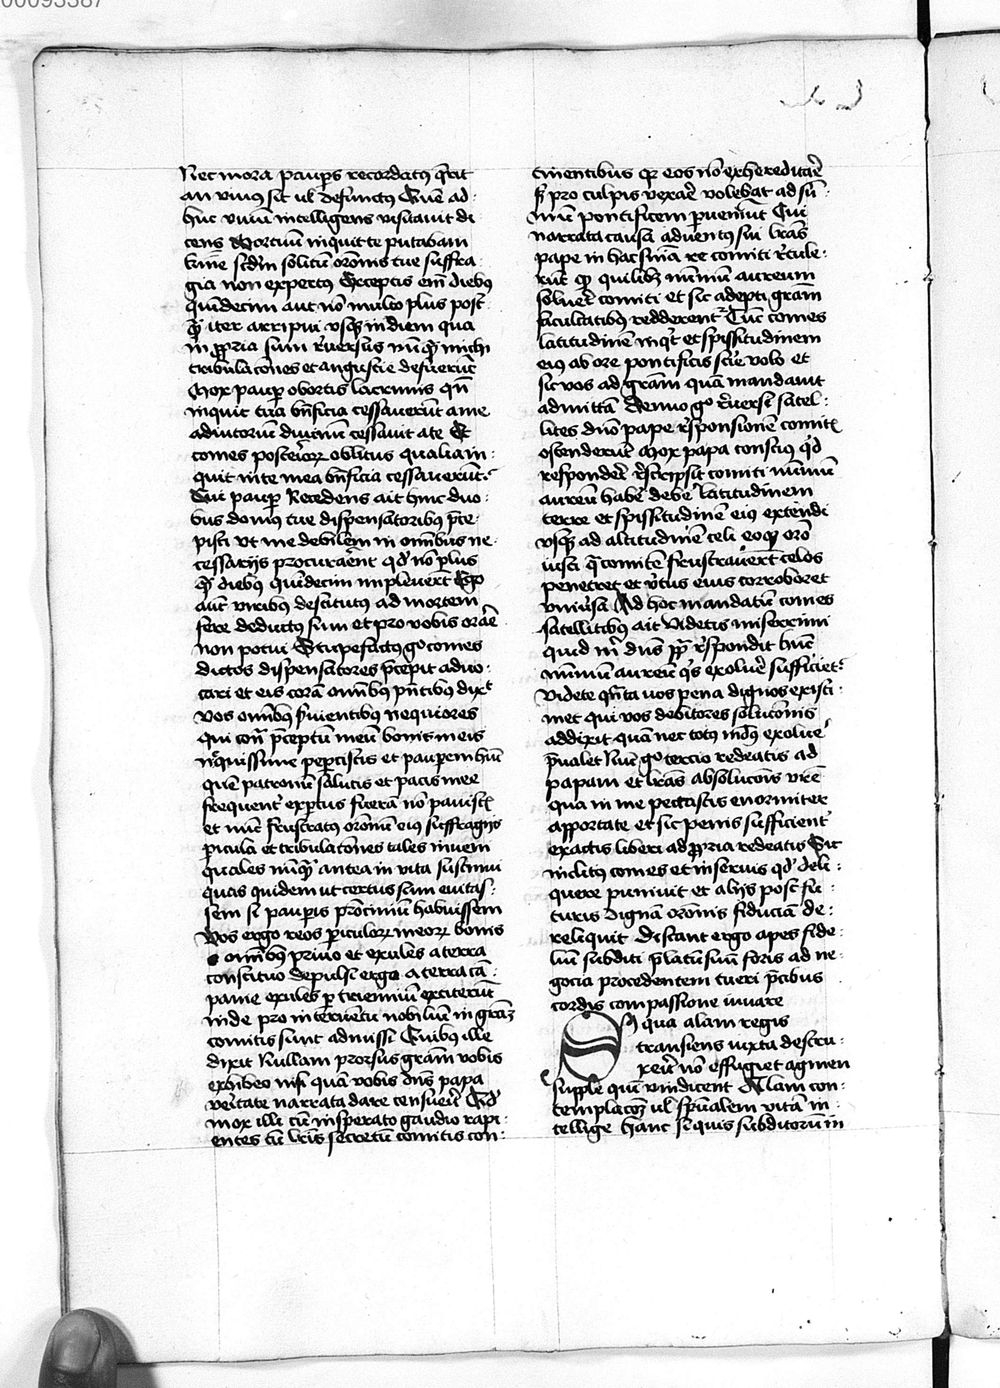 00093387
Nec mora paup̄is recordatꝰ q̄rit
an viuus sit ul̄ defunctus Quē ad-
huc viuū intelligens visitauit di
cens Mortuū inquit te putabam
sc̄dm solitū or̄onis tue suffra-
gia non expertꝰ Exceptis em̄ diebꝰ
quindecim aut nō multo plus post-
qͣ iter arripui vsqꝫ in diem qua
in ꝓpria sum reuersus nūqͣ michi
tribulac̄ones et angustie defuerūt
Mox paup̄ obortis lacrimis qn̄
inquit tua bn̄ficia cessauerūt a me
adiutoriū diuinū cessauit a te Et
comes posteriorꝫ oblitus qualia in-
quit in te mea bn̄ficia cessauerūt
Cui paup̄ Recedens ait hinc duo-
bus domꝰ tue dispensatoribꝰ p̄ce-
pisti vt me debilem in omībus ne-
cessarijs procurarēt qd̄ nō plus
qͣ diebꝰ quindecim impleuerūt Ego
aūt viribus destitutus ad mortem
fere deductꝰ sum et pro vobis orare
non potui Stupefactꝰ gͦ comes
dictos dispensatores p̄cepit aduo-
cari et eis corā omībꝰ p̄ntibus dixit
vos omībꝰ s̄uientibus nequiores
qui cont̄ p̄ceptū meū bonis meis
neqͥssime pepercistis et pauperem hūc
quē patronū salutis et pacis mee
frequent̄ exp̄tus fuerā nō pauistis
et nūc frustratus or̄onū eiꝰ suffragijs
p̄icula et tribulac̄ones tales inueni
quales nūqͣ antea in vita sustinui
quas quidem ut certus sum euitas-
sem si paup̄is p̄conium habuissem
Vos ergo reos p̄iculorꝫ meorꝫ bonis
omībus priuo et exules a terra
constituo depulsi ergo a terra cā-
panie exules p̄ trienniū extiterūt
inde pro interuentu nobiliū in gr̄am
comitis sunt admissi Quibus ille
dixit Nullam prorsus gr̄am vobis
exhibeo nisi quā vobis dn̄s papa
ueritate narrata dare censuerit Qd̄
mox illi cū insperato gaudio rapi-
entes cū lr̄is secretū comitis con-
tinentibus qꝫ eos nō exhereditare
sꝫ pro culpis vexare volebat ad sū-
mū pontificem p̄uenerūt Cui
narrata causa aduentus sui lr̄as
pape in hac sn̄ia re comiti r̄tule-
rūt qꝫ quilibꝫ nūmū aureum
solueret comiti et sic adepti gr̄am
facultatibꝰ redderentᷣ Tūc comes
latitudinē inqͥt et spissitudinem
eiꝰ ab ore pontificis scire volo et
sic vos ad gr̄am quā mandauit
admittā Denuo gͦ reuersi satel-
lites dn̄o pape r̄sponsionē comitis
ostenderūt Mox papa conscius qͥd
responderet r̄scripsit comiti nūmū
aureū habere debere latitudinem
terre et spissitudinē eiꝰ extendi
vsqꝫ ad altitudinē celi eo qꝫ or̄o
iusti qͣ comitē frustrauerūt celos
penetret et v̄tus eius corroboret
vniu̓sa Ad hoc mandatū comes
satellitibꝰ ait Videtis miserrimi
quid m̄ dn̄s pp̄ r̄spondit hūc
nūmū aureū qͥs exoluere sufficiet
Videte qn̄ta uos pena dignos existi-
met qui vos debitores soluc̄onis
addixit quā nec totꝰ mūdꝰ exoluere
p̄ualet Nūc gͦ tercio redeatis ad
papam et lr̄as absoluc̄ois vr̄e
qua in me peccastis enormiter
apportate et sic penis sufficient̄
exactis liberi ad ꝓpria redeatis Sic
inclitꝰ comes et in seruis qd̄ deli-
quere puniuit et alijs post fu-
turis dignā or̄onis fiduciā de-
reliquit Discant ergo apes fide-
liū subditi p̄latū suū foris ad ne-
gocia procedentem tueri p̄cibus
cordis compassione iuuare
Si qua alam regis
transiens iuxta destru-
xerit nō effugiet agmen
supple quī vindicent Alam con-
templac̄oꝫ ul̄ sp̄ualem vitā in-
tellige hanc si quis subditorū in